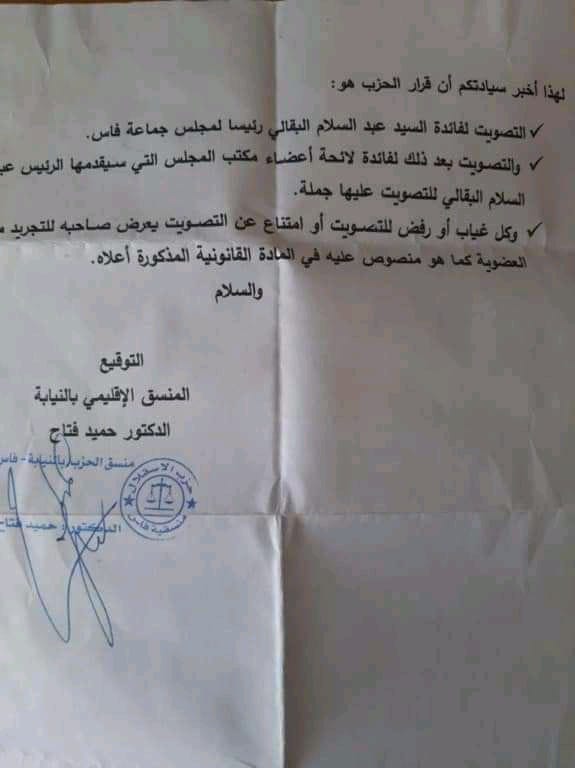 لهذا أخبر سيادتكم أن قرار الحزب هو:
✓ التصويت لفائدة السيد عبد السلام البقالي رئيسا لمجلس جماعة فاس.
✓ والتصويت بعد ذلك لفائدة لائحة أعضاء مكتب المجلس التي سيقدمها الرئيس عب
السلام البقالي للتصويت عليها جملة.
✓ وكل غياب أو رفض للتصويت أو امتناع عن التصويت يعرض صاحبه للتجريد م
العضوية كما هو منصوص عليه في المادة القانونية المذكورة أعلاه.
والسلام
التوقيع
المنسق الإقليمي بالنيابة
الدكتور حميد فتاح
منسق الحزب بالنيابة - فاس
حزب الاستقلال
منسقية فاس
الدكتور: حميد فتاح